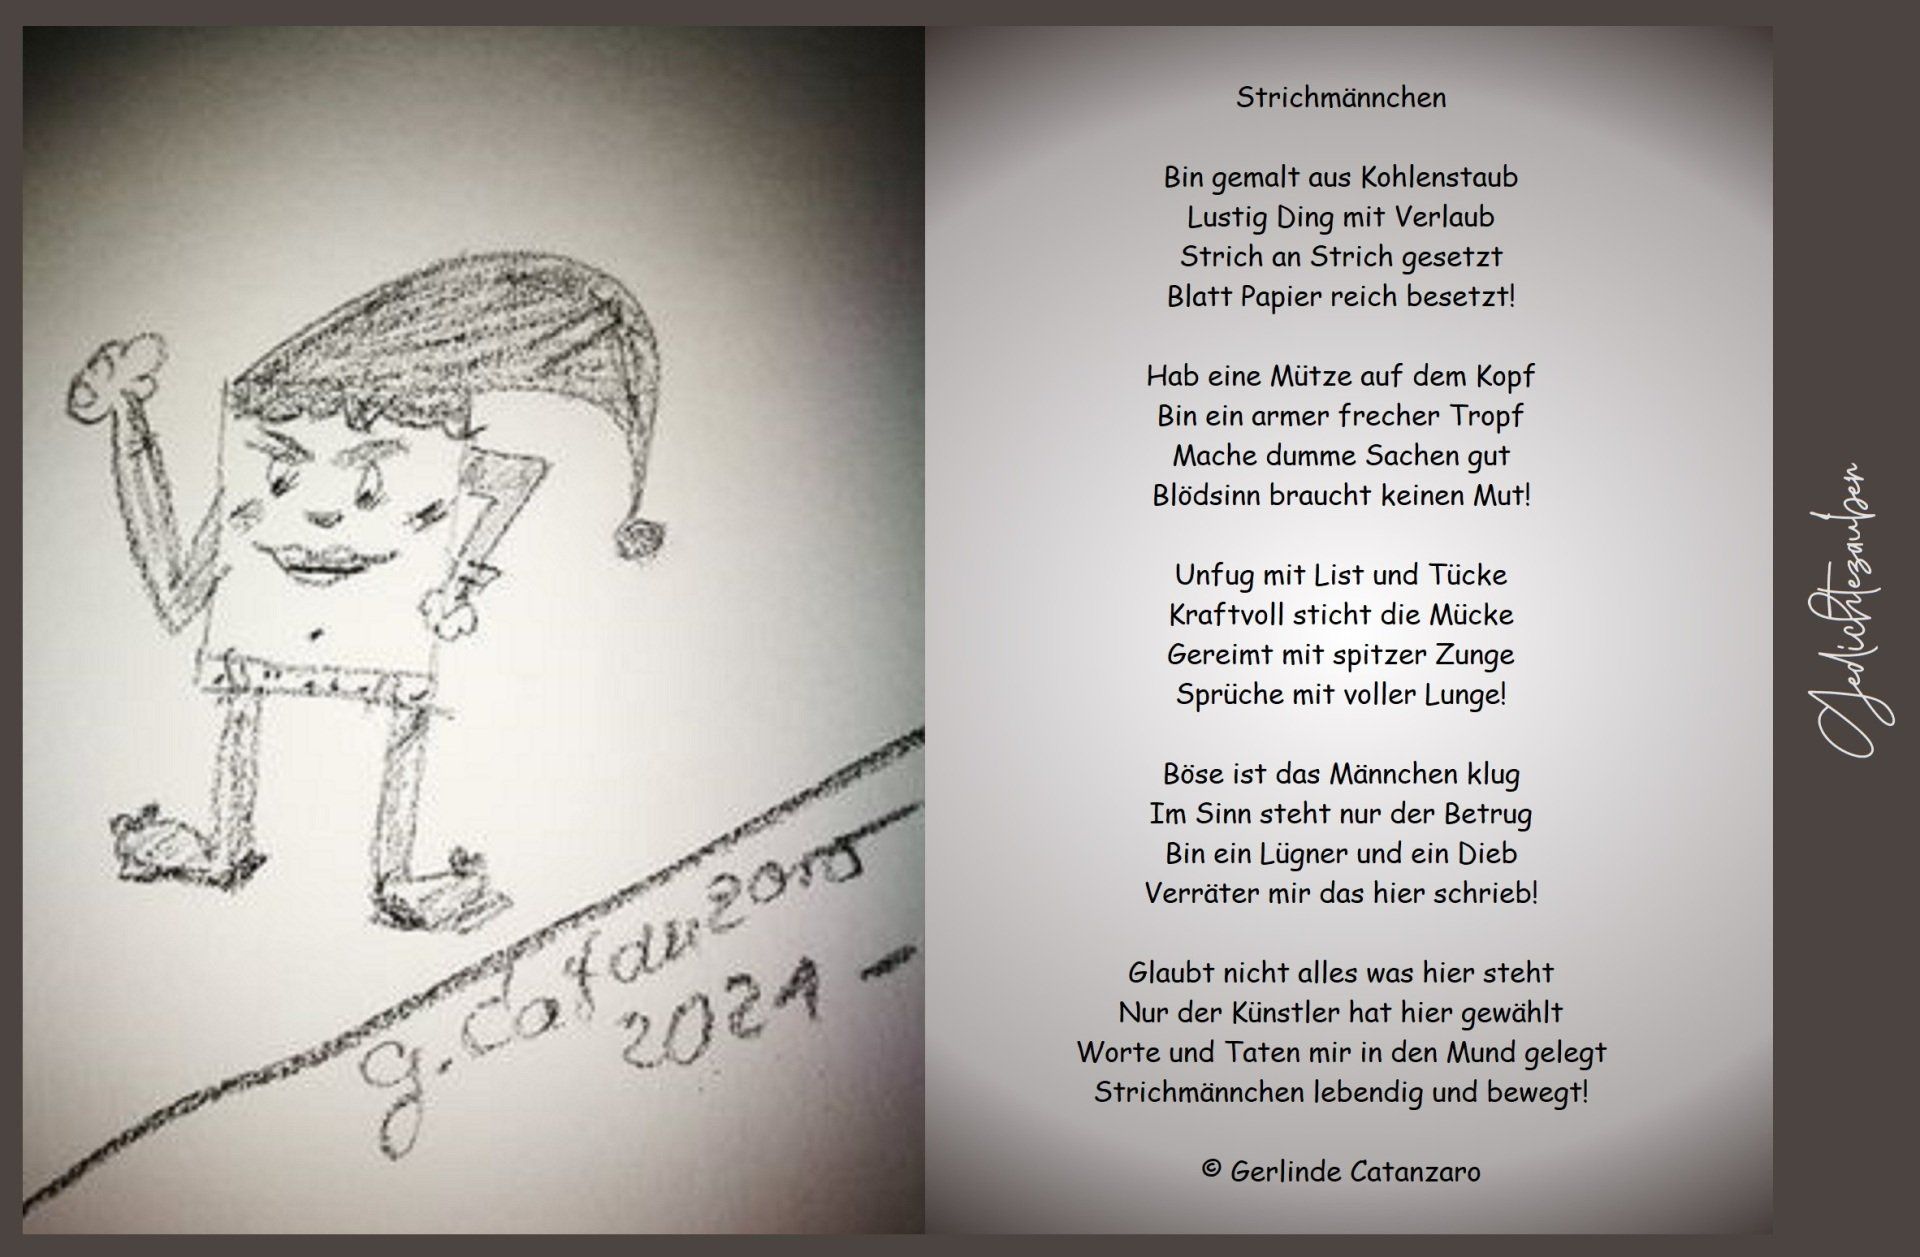 G. Catanzaro
2021
Strichmännchen
Bin gemalt aus Kohlenstaub
Lustig Ding mit Verlaub
Strich an Strich gesetzt
Blatt Papier reich besetzt!
Hab eine Mütze auf dem Kopf
Bin ein armer frecher Tropf
Mache dumme Sachen gut
Blödsinn braucht keinen Mut!
Unfug mit List und Tücke
Kraftvoll sticht die Mücke
Gereimt mit spitzer Zunge
Sprüche mit voller Lunge!
Böse ist das Männchen klug
Im Sinn steht nur der Betrug
Bin ein Lügner und ein Dieb
Verräter mir das hier schrieb!
Glaubt nicht alles was hier steht
Nur der Künstler hat hier gewählt
Worte und Taten mir in den Mund gelegt
Strichmännchen lebendig und bewegt!
© Gerlinde Catanzaro
Gedichtezauber